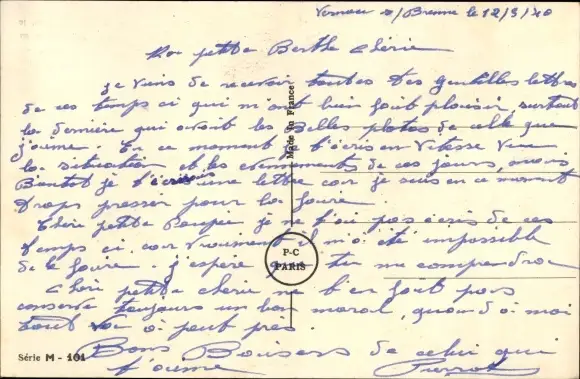 Vernou s/Brenne le 12/5/40
Ma petite Berthe chérie
je viens de recevoir toutes tes gentilles lettres
de ces temps ci qui m'ont bien fait plaisir, surtout
la dernière qui avait les belles photos de celle que
j'aime. En ce moment je t'écris en vitesse vu
la situation et les evenements de ces jours, mais
Bientot je t'écris une lettre car je suis en ce moment
trops presser pour la faire
Chère petite Poupée je ne t'ai pas écris de ces
temps ci car vraiment il m'a été impossible
de le faire j'espère que tu me comprendra
Chère petite cherie ne t'en fait pas
conserve toujours un bon moral, quand à moi
tout va à peut près.
Bons Baisers de celui qui
t'aime Pierrot
Made in France
P-C
PARIS
Série M - 101